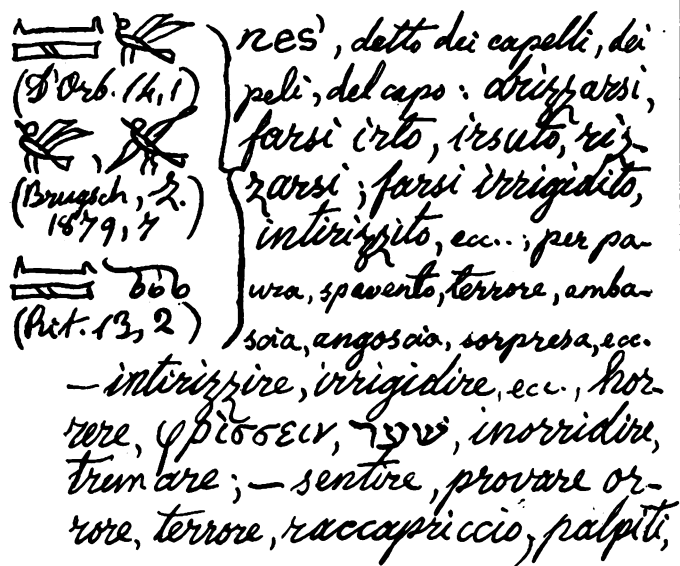 nes', detto dei capelli, dei
(D'Orb. 14, 1) peli, del capo: drizzarsi,
farsi irto, irsuto, riz-
(Brugsch, Z. 1879, 7) zarsi; farsi irrigidito,
intirizzito, ecc..; per pa-
ura, spavento, terrore, amba-
(Rit. 13, 2) scia, angoscia, sorpresa, ecc.
— intirizzire, irrigidire, ecc., hor-
rere, φρίσσειν, שׂער, inorridire,
tremare; — sentire, provare or-
rore, terrore, raccapriccio, palpiti,